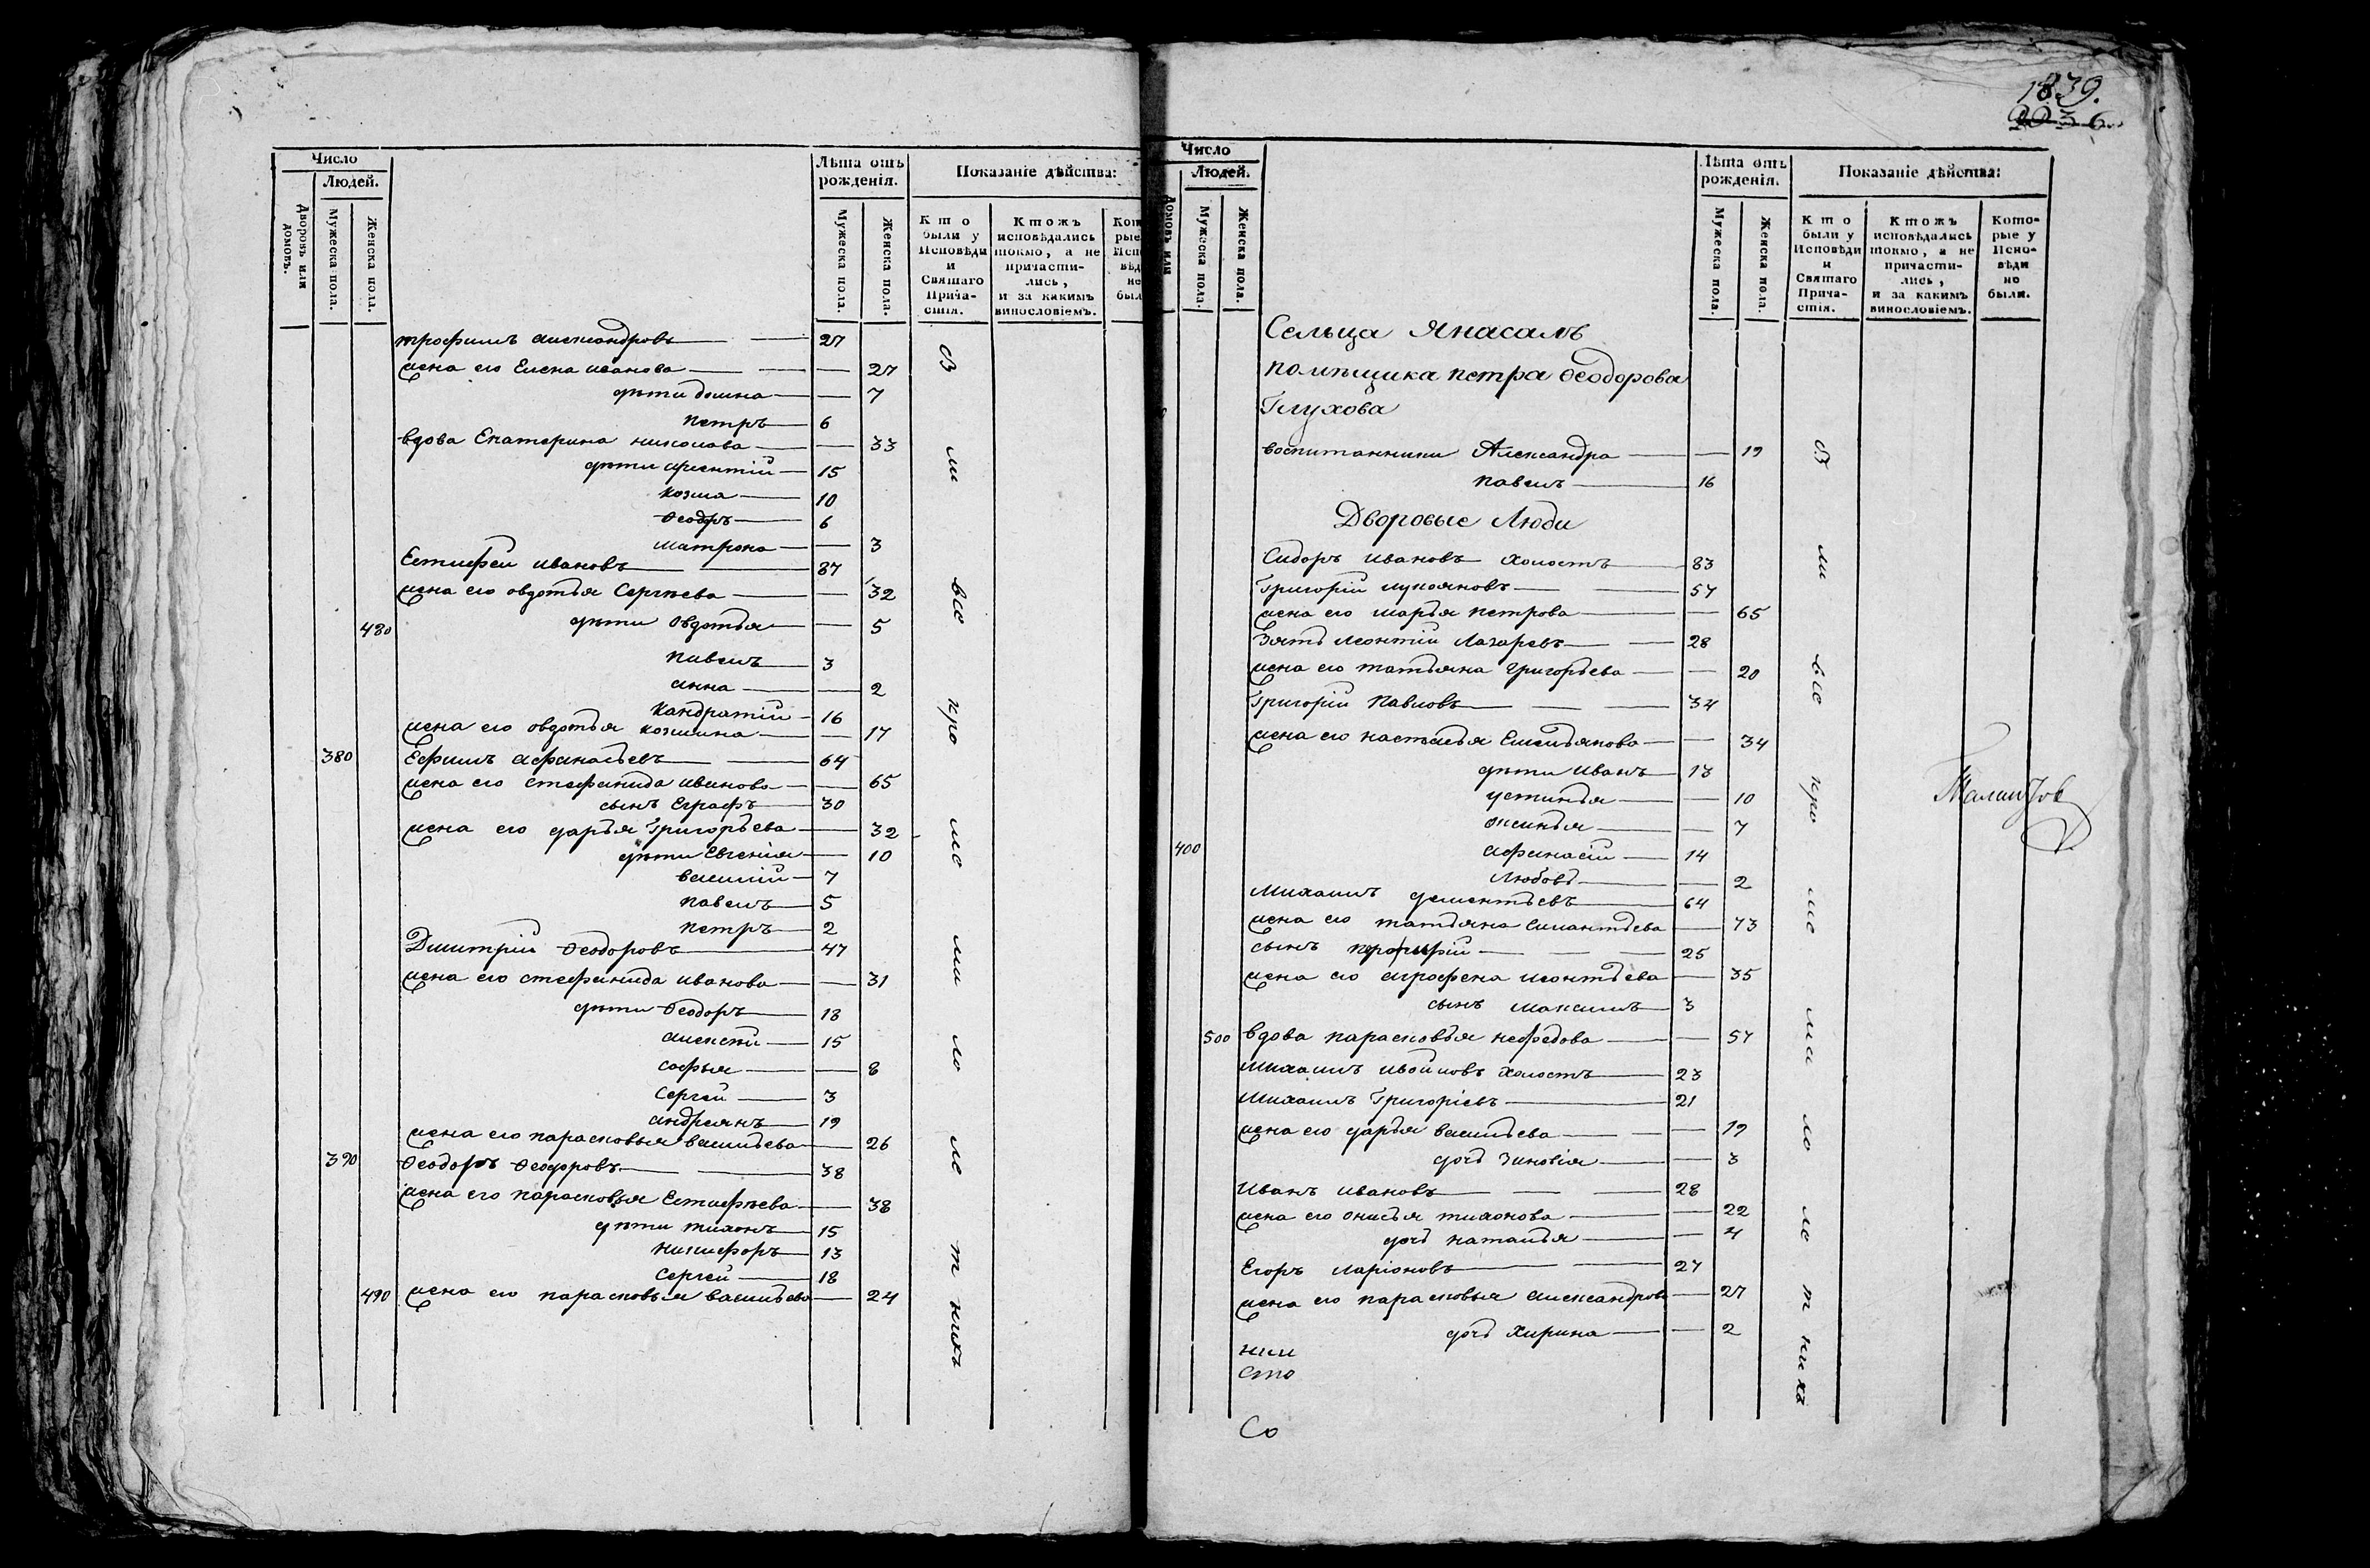 Число
Людей.
Дворовъ или домовъ.
Мужеска пола.
Женска пола.
Лѣта отъ рожденія.
Мужеска пола.
Женска пола.
Показаніе дѣйства:
Кто были у Исповѣди и Святаго Причастія.
Ктожъ исповѣдались токмо, а не причастились, и за какимъ винословіемъ.
трофимъ александровъ 27
жена его Елена иванова 27
дѣти домна 7
петръ 6
вдова Екатерина николаева 33
дѣти арсентій 15
козма 10
Ѳеодръ 6
матрона 3
Естифей ивановъ 37
жена его овдотья Сергѣева 32
480 дѣти овдотья 5
павелъ 3
анна 2
кандратій 16
жена его овдотья козмина 17
380 Ефимъ афанасьевъ 64
жена его стефанида иванова 65
сынъ Еграфъ 30
жена его дарья Григорьева 32
дѣти Евгенія 10
василій 7
павелъ 5
петръ 2
Дмитрій Ѳеодоровъ 47
жена его стефанида иванова 31
дѣти Ѳеодоръ 18
алексѣй 15
софья 8
Сергей 3
андреянъ 19
жена его парасковья васильева 26
390 Ѳеодоръ Ѳеодоровъ 38
жена его парасковья Естифѣева 38
дѣти тихонъ 15
никифоръ 13
Сергей 18
490 жена его парасковья васильева 24
1839.
Число
Людей.
Домовъ или
Мужеска пола.
Женска пола.
Лѣта отъ рожденія.
Мужеска пола.
Женска пола.
Показаніе дѣйства:
Кто были у Исповѣди и Святаго Причастія.
Ктожъ исповѣдались токмо, а не причастились, и за какимъ винословіемъ.
Которые у Исповѣди не были.
Сельца Янасалъ
помѣщика петра Ѳеодорова
Глухова
воспитанники Александра 19
павелъ 16
Дворовые Люди
Сидоръ ивановъ холостъ 83
Григорій лукояновъ 57
жена его марья петрова 65
Зять леонтій Лазаревъ 28
жена его татьяна григорьева 20
Григорій павловъ 34
жена его настасья Емельянова 34
дѣти иванъ 13
устинья 10
аксинья 7
400 афанасій 14
Любовь 2
Михаилъ дементьевъ 64
жена его татьяна 73
сынъ 25
жена его агрофена леонтьева 35
сынъ максимъ 3
500 вдова парасковья нефедова 57
михаилъ холостъ 23
михаилъ Григоріевъ 21
жена его дарья васильева 19
дочь Зиновія 3
иванъ ивановъ 28
жена его анисья тихонова 22
дочь наталья 4
Егоръ ларіоновъ 27
жена его парасковья александрова 27
дочь Хирина 2
Со